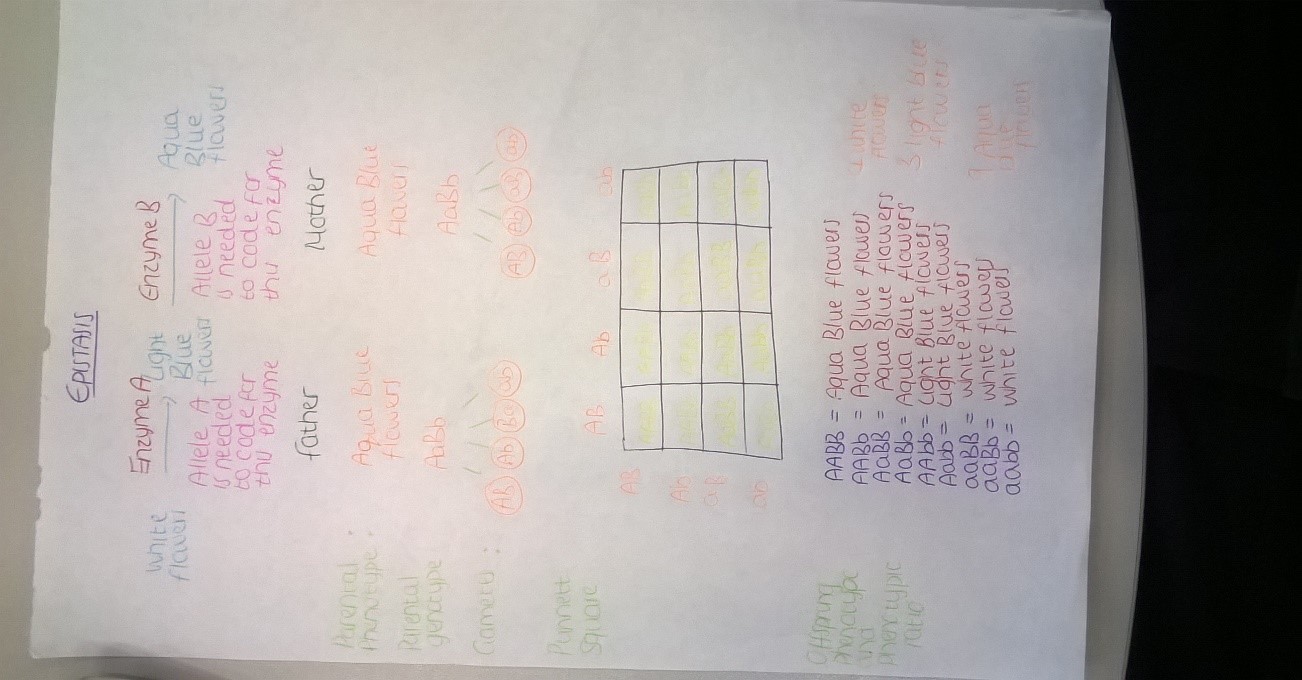 EPISTASIS
White Enzyme A Light Enzyme B Aqua
flowers Blue Blue
flowers flowers
Allele A Allele B
is needed is needed
to code for to code for
this enzyme this enzyme
father Mother
Parental Aqua Blue Aqua Blue
Phenotype: flowers flowers
Parental AaBb AaBb
genotype
Gametes: AB Ab Ba ab AB Ab aB ab
Punnett
square
AB Ab aB ab
AB
Ab
aB
ab
Offspring
phenotype
and
phenotypic
ratio
AABB = Aqua Blue flowers
AABb = Aqua Blue flowers
AaBB = Aqua Blue flowers
AaBb = Aqua Blue flowers
AAbb = Light Blue flowers
Aabb = Light Blue flowers
aaBB = white flowers
aaBb = white flowers
aabb = white flowers
4 white
flowers
3 light blue
flowers
9 Aqua
blue
flowers